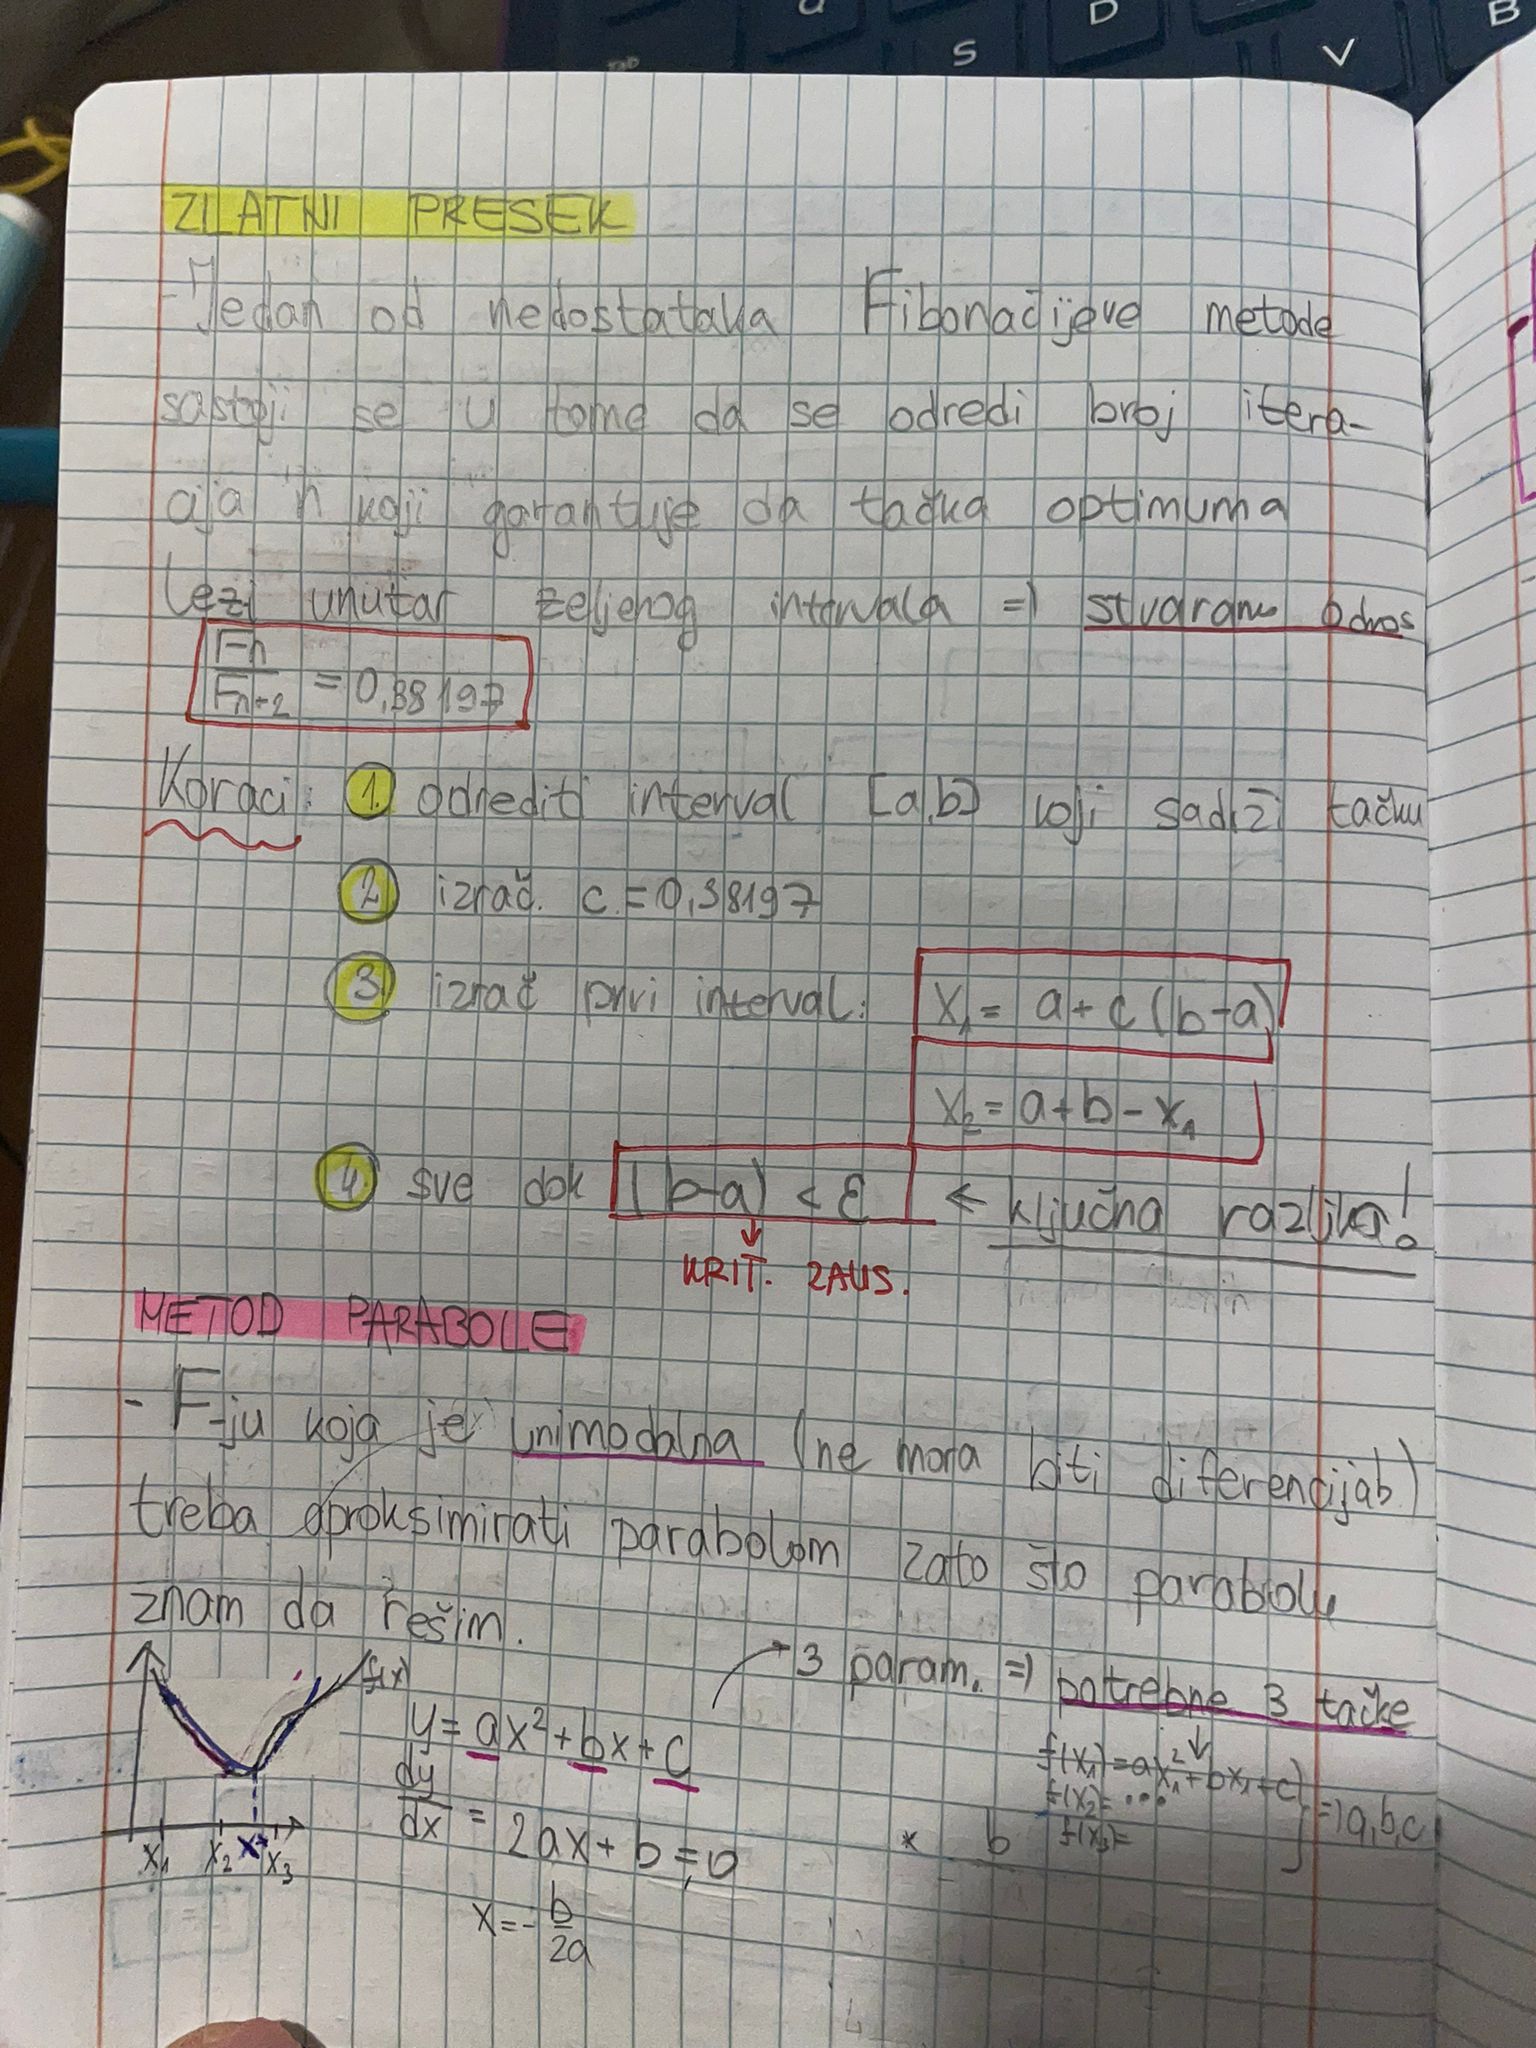 D
S
V
B
ZLATNI PRESEK
- Jedan od nedostataka Fibonačijeve metode
sastoji se u tome da se odredi broj itera-
cija n koji garantuje da tačka optimuma
leži unutar željenog intervala => stvaramo odnos
Fn/Fn+2 = 0,38197
Koraci: 1. odrediti interval [a,b] koji sadrži tačku
2 izrač. c = 0,38197
3. izrač prvi interval: x1 = a + c (b-a)
x2 = a+b - x1
4. sve dok (b-a) < ε ← ključna razlika!
KRIT. ZAUS.
METOD PARABOLE
- F-ju koja je unimodalna (ne mora biti diferencijab)
treba aproksimirati parabolom zato što parabolu
znam da rešim.
f(x)
3 param. => potrebne 3 tačke
y = ax² + bx + c
f(x1) = ax1² + bx1 + c
f(x2) = ...
f(x3) =
} => a, b, c
dy/dx = 2ax + b = 0
x1 x2 x* x3
* b
x = - b/2a